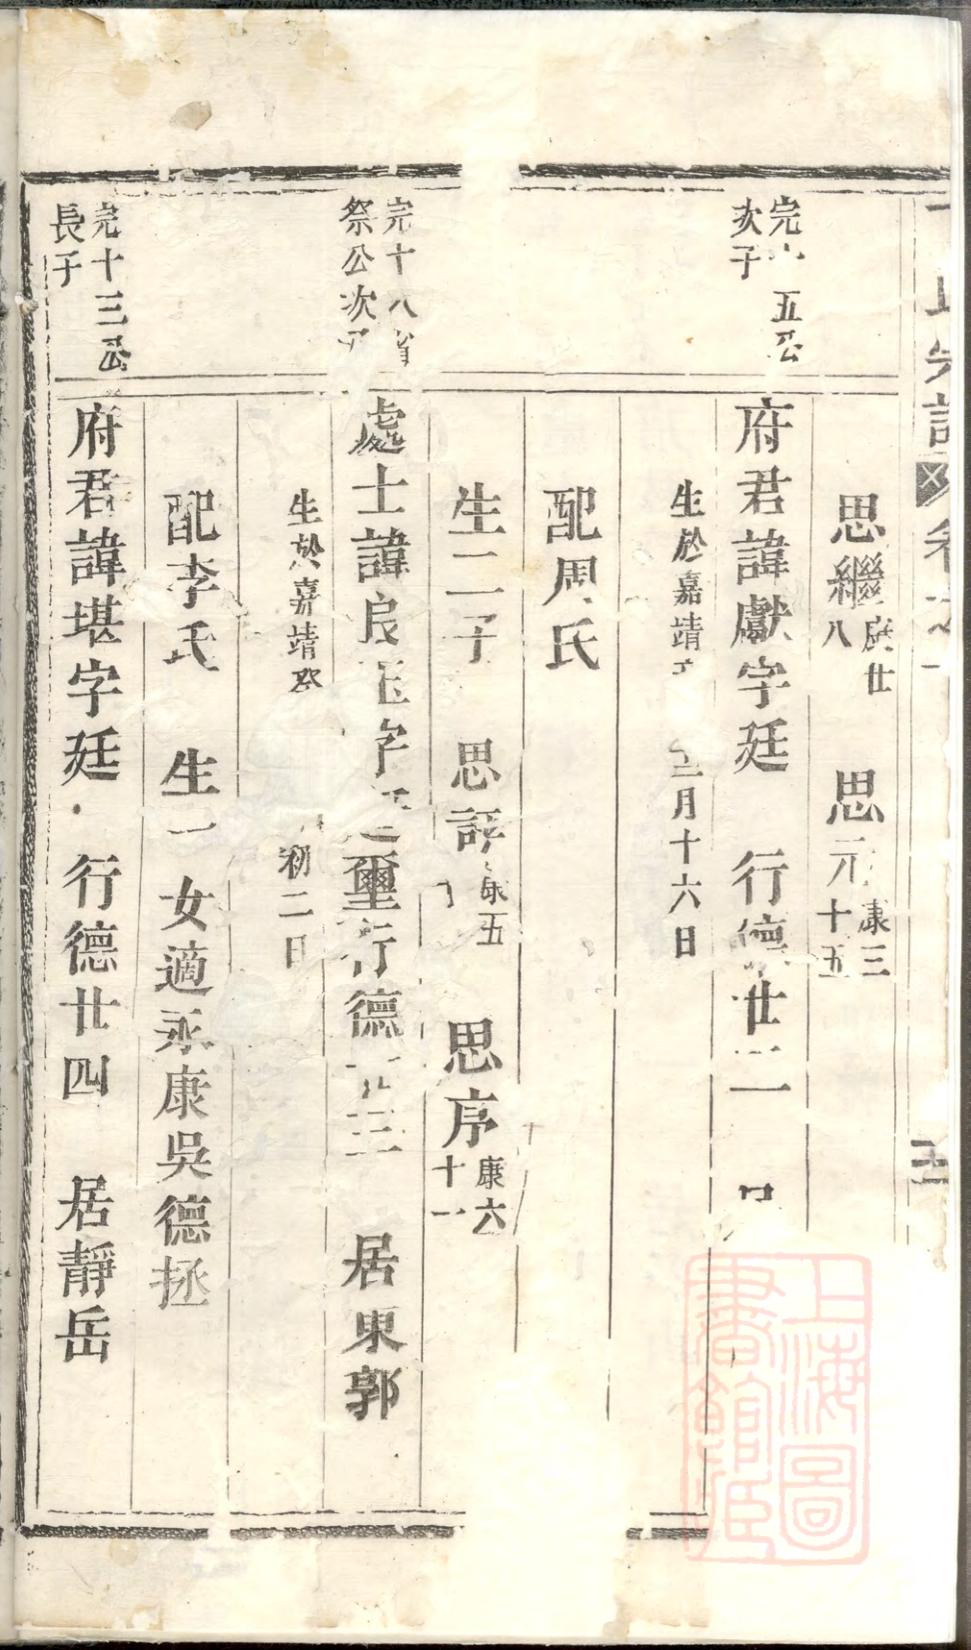 思繼 康廿八 思元 康三十五
完 五公次子
府君諱獻字廷 行德廿二
生於嘉靖 三月十六日
配周氏
生二子 思 康五 思序 康六十一
完十八省祭公次子
處士諱良 字 璽行德 三 居東郭
生於嘉靖癸 初二日
配李氏 生一女適永康吳德拯
完十三公長子
府君諱堪字廷 行德廿四 居靜岳
上海圖書館藏